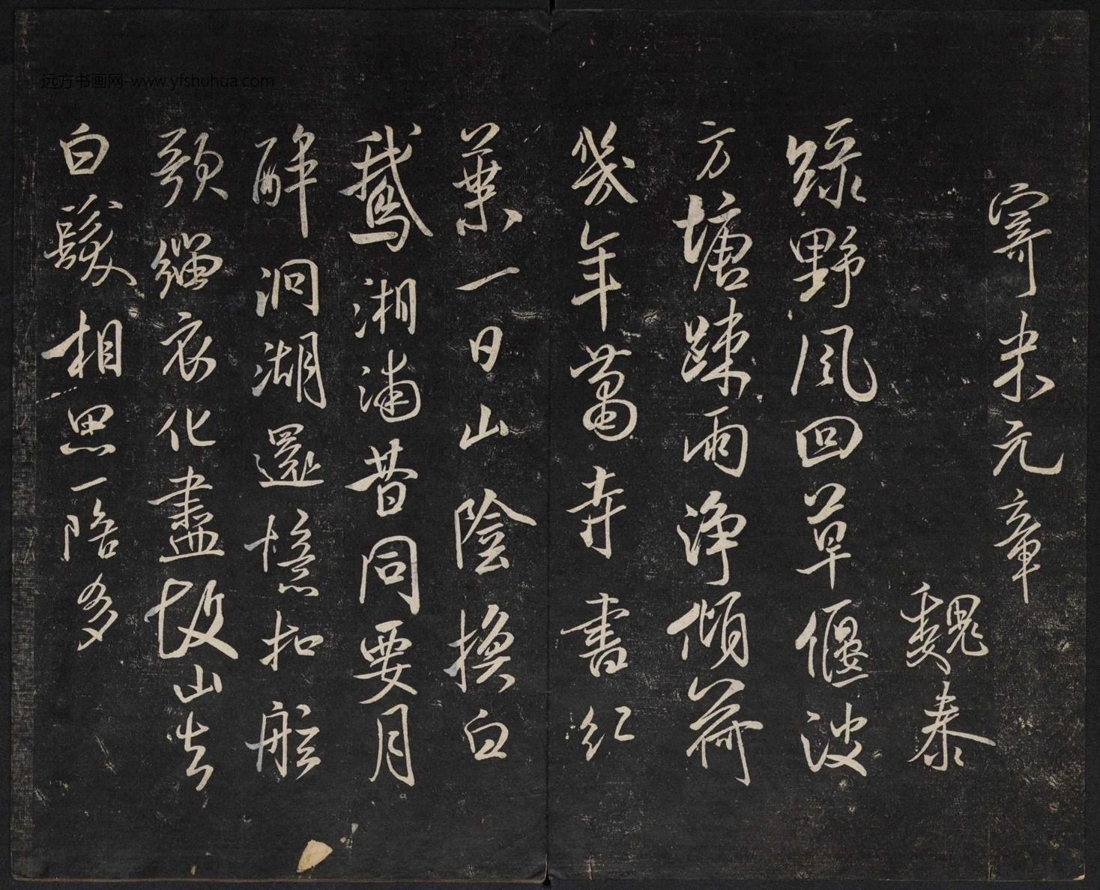 寄米元章
魏泰
綠野風回草偃波
方塘疎雨淨傾荷
幾年蕭寺書紅
葉一日山陰換白
鵝湘浦昔同要月
醉洞湖還憶扣舷
歌緇衣化盡故山去
白髮相思一陪多
远方书画网-www.yfshuhua.com